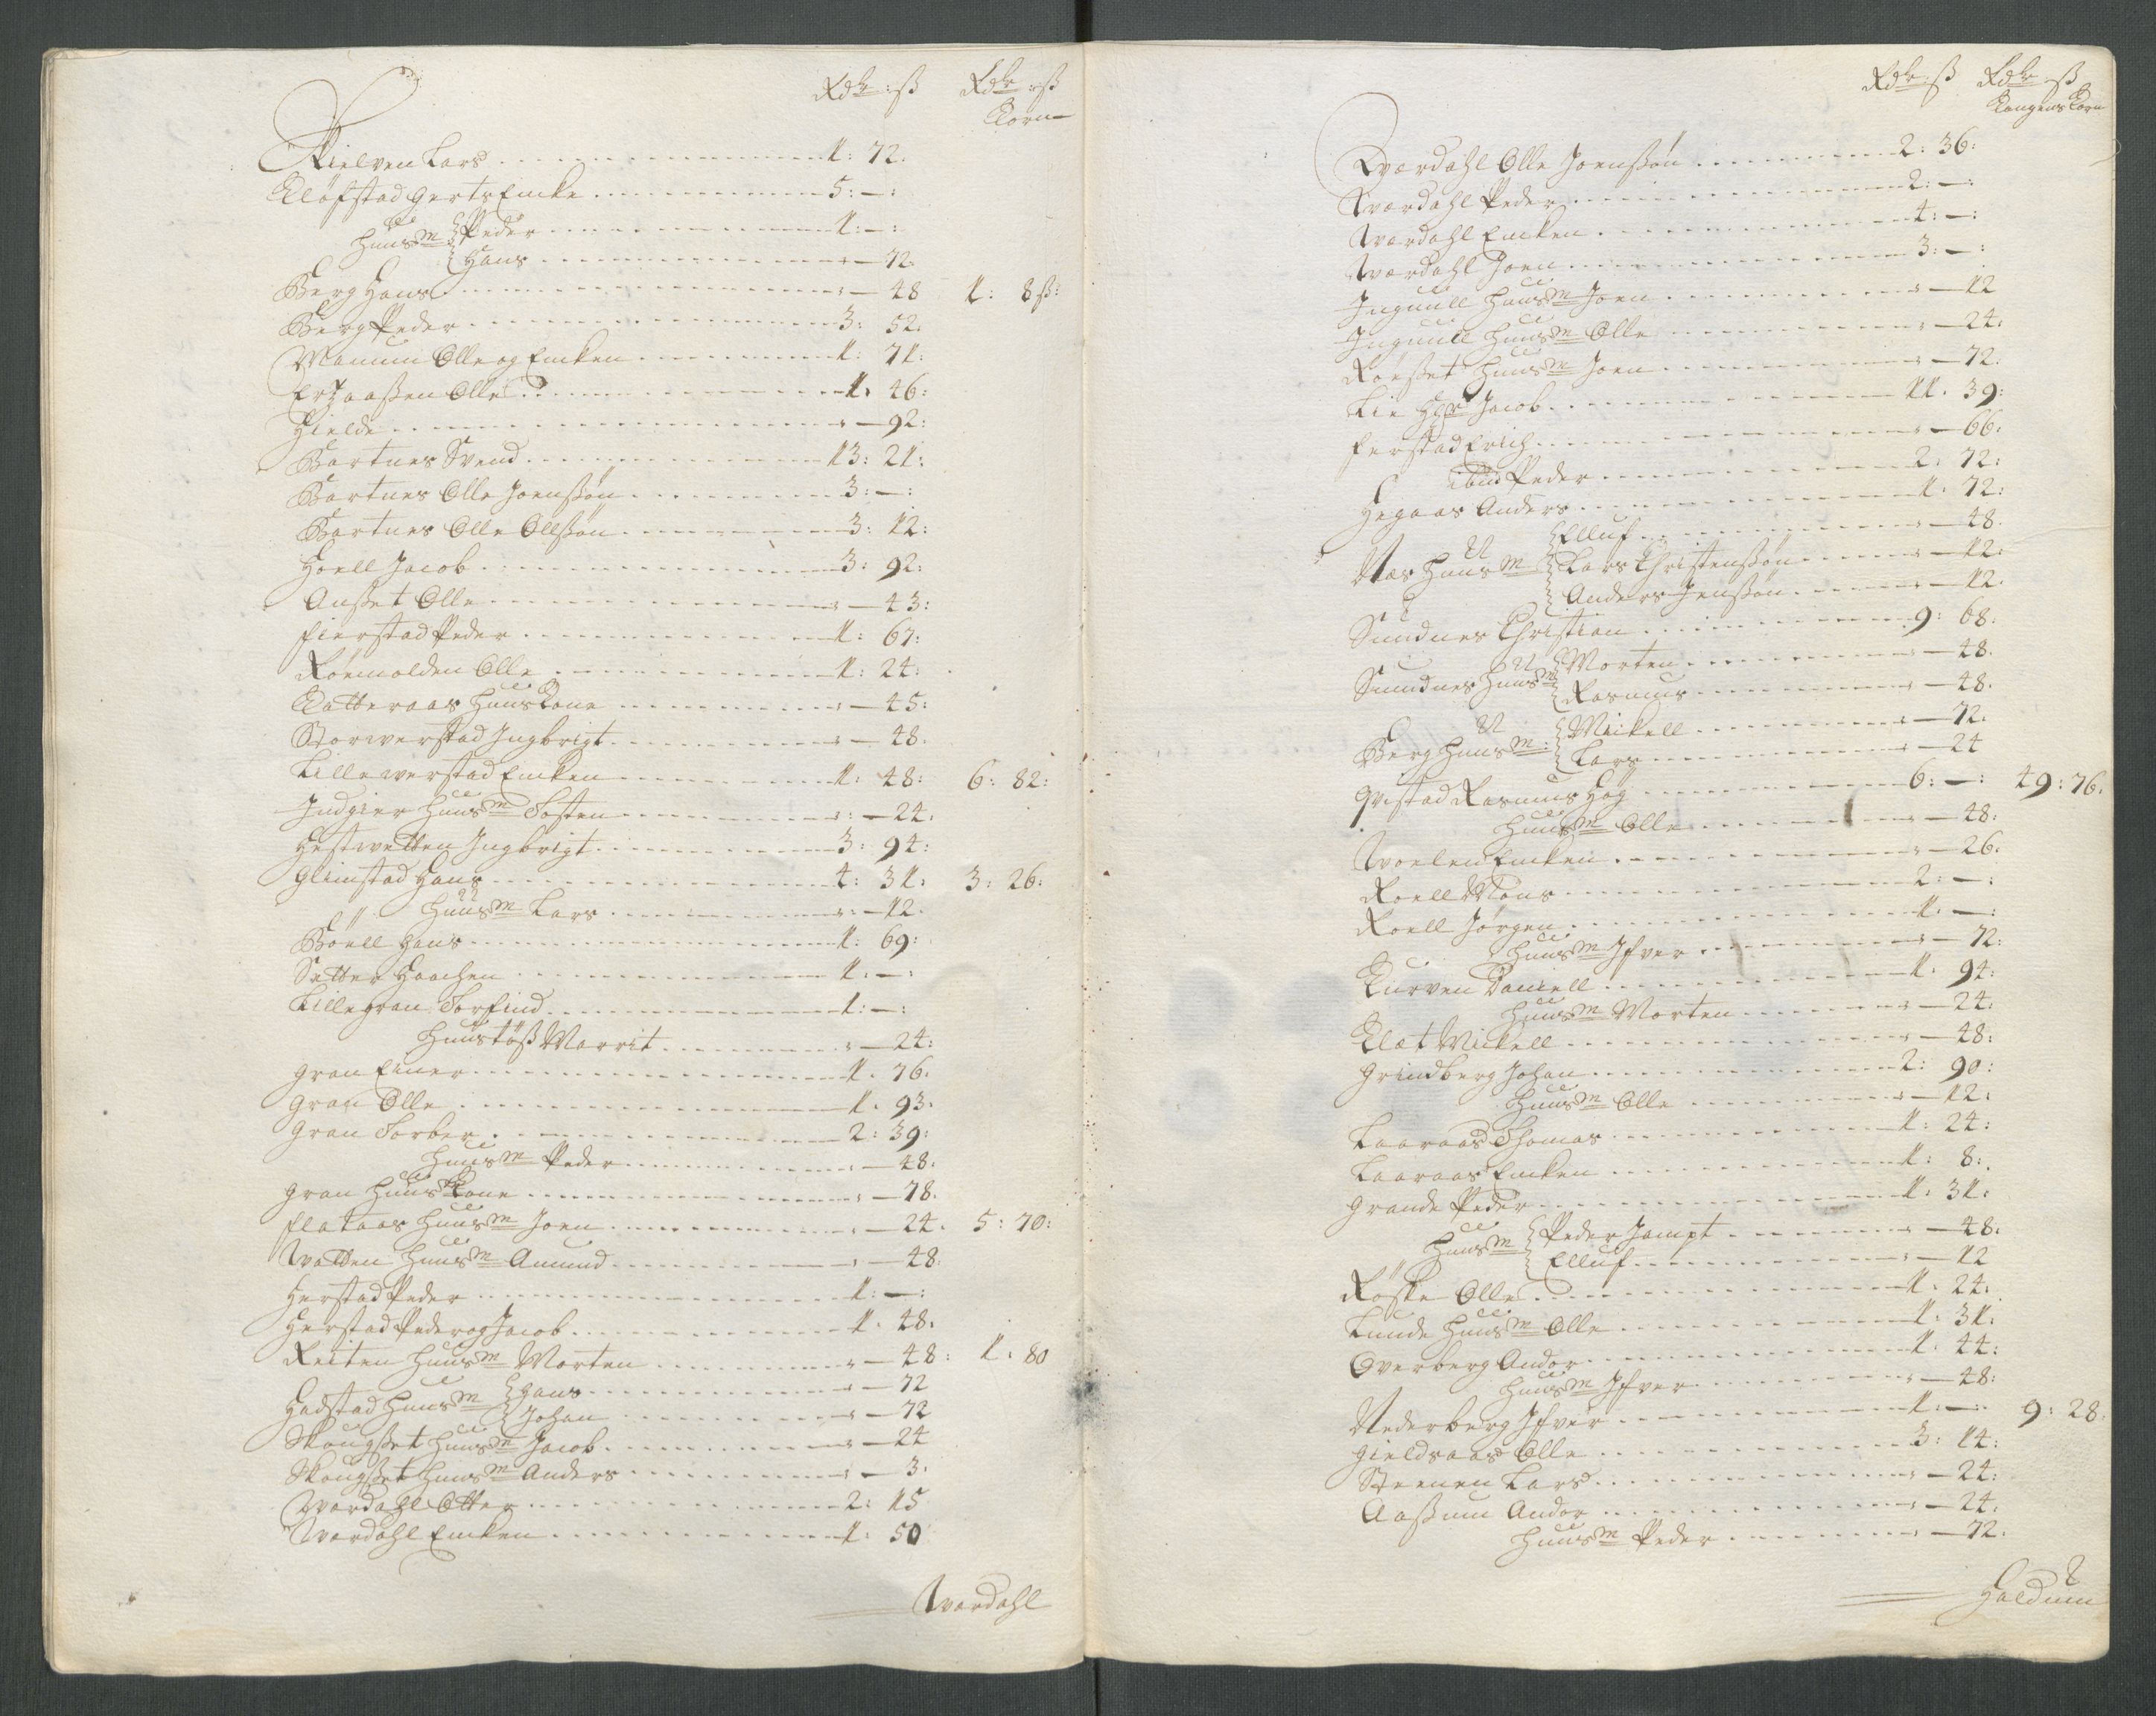 Rdr : ß Rdr : ß
Korn
Kielven Lars 1: 72.
Kløfstad Gerts Encke 5: —:
Huusm Peder 1: —:
Hans : — 72.
Berg Hans : — 48 1: 8 ß:
Berg Peder 3: 52.
Mamun Olle og Encken 1: 71:
Ertzaaßen Olle 1: 46:
Hielde : — 92:
Bartnes Svend 13: 21:
Bartnes Olle Joenßøn 3: —:
Bartnes Olle Ollßøn 3: 12:
Hoell Jacob 3: 92:
Außet Olle : — 43:
Fierstad Peder 1: 67:
Röemolden Olle 1: 24:
Katteraas Huuskone : — 45:
Storwerstad Ingbrigt : — 48.
Lillewerstad Encken 1: 48: 6: 82:
Indgier Huusm Tosten : — 24.
Hestwetten Ingbrigt 3: 94:
Glimstad Hans 4: 31: 3: 26:
Huusm Lars : — 12.
Böell Hans 1: 69:
Setter Haachen 1: —:
Lillegran Torfind 1: —:
Huustöß Marrit : — 24:
Gran Einer 1. 76.
Gran Olle 1. 93.
Gran Torber 2: 39:
Huusm Peder : — 48.
Gran Huuskone : — 78.
Flataas Huusm Joen : — 24. 5: 70:
Watten Huusm Amund : — 48.
Herstad Peder 1: —:
Herstad Peder og Jacob 1. 48.
Reiten Huusm Morten : — 48: 1: 80
Hadstad Huusm Hans : — 72
Johan : — 72
Skougßet Huusm Jacob : — 24
Skougßet Huusm Anders : — 3.
Wardahl Otter 2: 15
Wardahl Encken 1: 50
Wardahl
Rdr : ß Rdr : ß
Kongens Korn
Wærdahl Olle Joenßøn 2: 36:
Wærdahl Peder 2: —:
Wærdahl Encken 4: —:
Wærdahl Joen 3: —:
Inguull Huusm Joen : — 12
Inguull Huusm Olle : — 24:
Roeßet Huusm Joen : — 72.
Lie Hgr Jacob 11. 39:
Ferstad Erich : — 66.
ibid Peder 2: 72:
Hegaas Anders 1. 72:
Elluf : — 48.
Næs Huusm Lars Christenßøn : — 12:
Anders Jenßøn : — 12.
Sundnes Christian 9: 68.
Sundnes Huusm Morten : — 48.
Rasmus : — 48.
Berg Huusm: Mickell : — 72.
Lars : — 24
Qvistad Rasmus Høg 6: —: 49: 76.
Huusm Olle : — 48:
Woelen Encken : — 26.
Roell Mons 2: —:
Roell Jørgen 1. —:
Huusm Ifver : — 72:
Kurven Daniell 1. 94:
Huusm Morten : — 24:
Klæt Mickell : — 48:
Grindberg Johan 2: 90:
Huusm Olle : — 12:
Laaraas Thomas 1: 24:
Laaraas Encken 1: 8:
Grande Peder 1: 31:
Huusm Peder Jampt : — 48:
Elluf : — 12
Röske Olle 1. 24:
Lunde Huusm Olle 1. 31:
Overberg Andor 1. 44:
Huusm Ifver : — 48:
Nederberg Ifver 1: —: 9: 28.
Gieldsaas Olle 3: 14:
Steenen Lars : — 24:
Aaßum Andor : — 24.
Huusm Peder : — 72.
Haldum